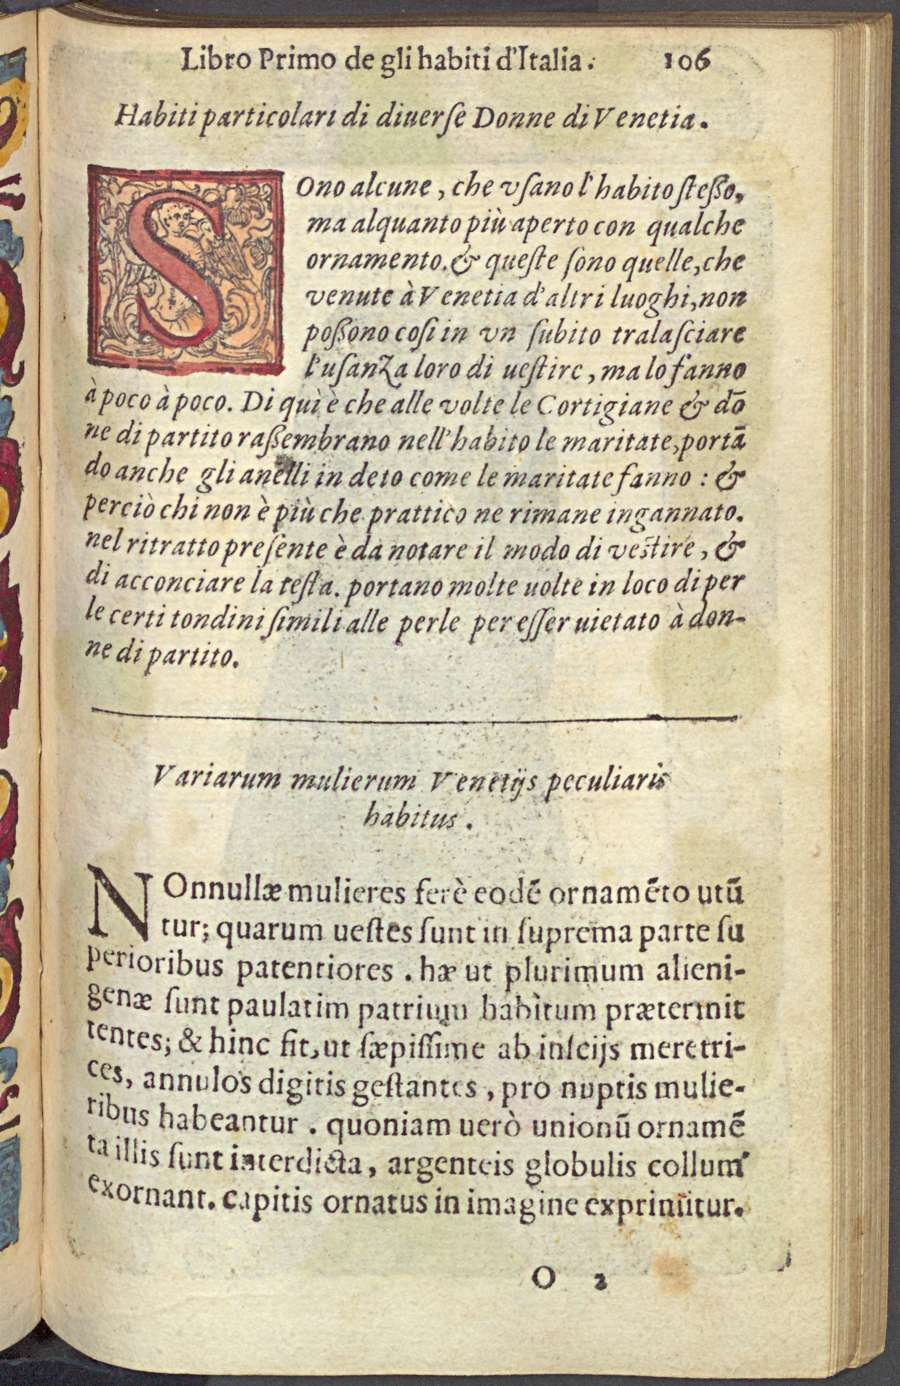 Libro Primo de gli habiti d'Italia. 106
Habiti particolari di diuerſe Donne di Venetia.
SOno alcune, che vſano l'habito ſteſſo,
ma alquanto più aperto con qualche
ornamento. & queſte ſono quelle, che
venute à Venetia d'altri luoghi, non
poſſono coſi in vn ſubito tralaſciare
l'uſanza loro di ueſtire, ma lo fanno
à poco à poco. Di qui è che alle volte le Cortigiane & dõ
ne di partito raſſembrano nell'habito le maritate, portã
do anche gli anelli in deto come le maritate fanno : &
perciò chi non è più che prattico ne rimane ingannato.
nel ritratto preſente è da notare il modo di veſtire, &
di acconciare la teſta. portano molte uolte in loco di per
le certi tondini ſimili alle perle per eſſer uietato à don-
ne di partito.
Variarum mulierum Venetijs peculiaris
habitus.
NOnnullæ mulieres ferè eodẽ ornamẽto utũ
tur; quarum ueſtes ſunt in ſuprema parte ſu
perioribus patentiores. hæ ut plurimum alieni-
genæ ſunt paulatim patrium habitum prætermit
tentes; & hinc fit, ut ſæpiſſime ab inſcijs meretri-
ces, annulos digitis geſtantes, pro nuptis mulie-
ribus habeantur. quoniam uerò unionũ ornamẽ
ta illis ſunt interdicta, argenteis globulis collum
exornant. capitis ornatus in imagine exprimũtur.
O 2